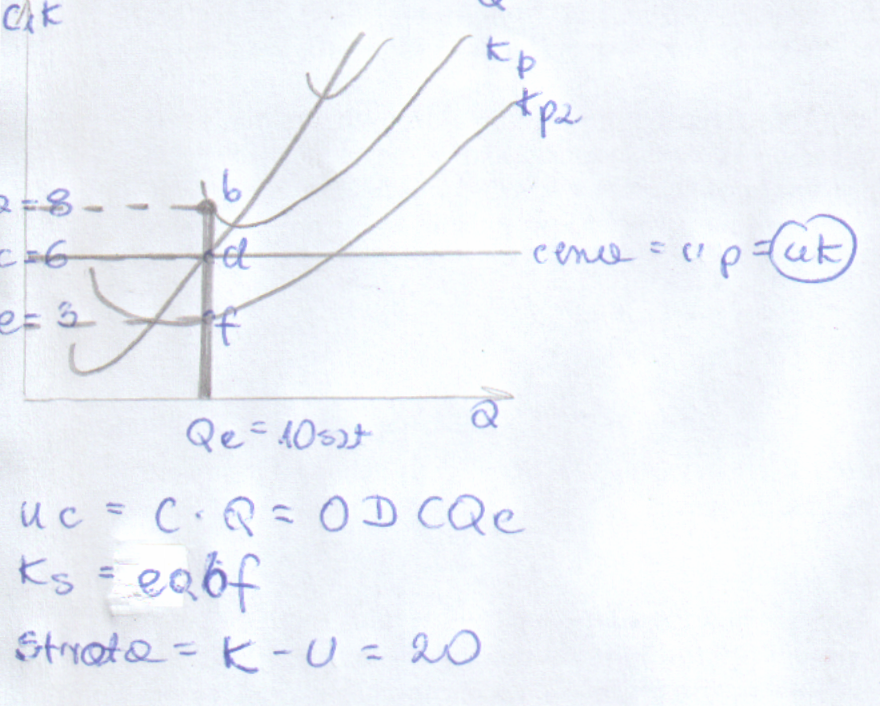 C,K
Kp
Kp2
a=8 b
c=6 d
cena = up = uk
e=3 f
Qe = 10szt
Q
uc = C · Q = O D C Qe
Ks = eabf
strata = K - U = 20